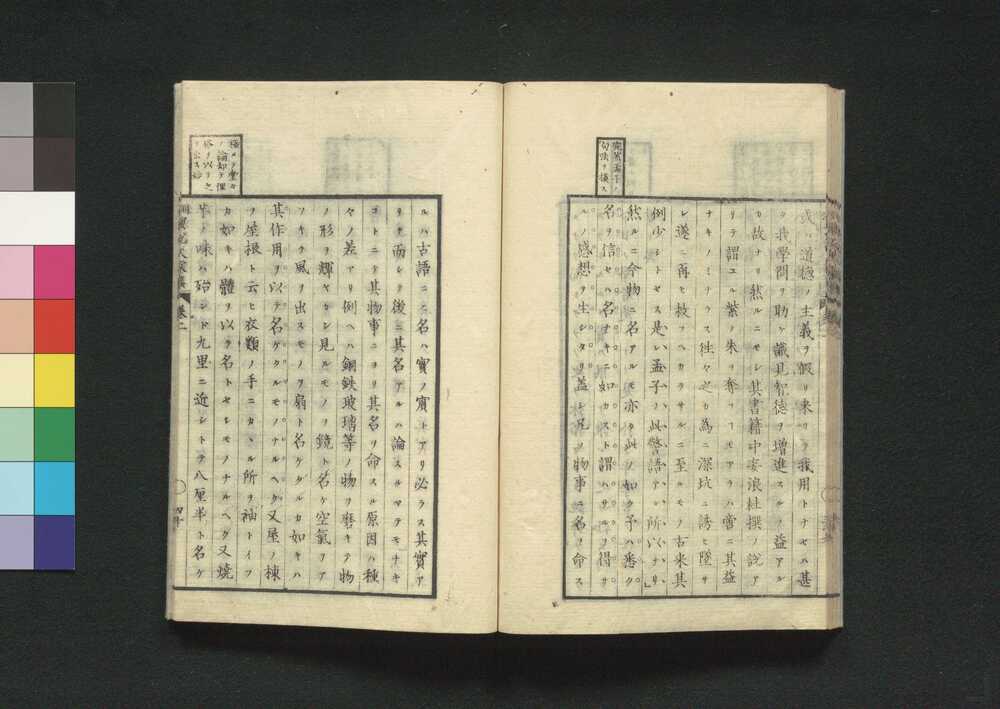 宛然孟子ノ
句法ヲ模ス
或ハ道德ノ主義ヲ假リ来ツテ我用トナセハ甚
タ我學問ヲ助ケ識見智德ヲ増進スルノ益アル
カ故ナリ然ルニモシ其書籍中妄浪杜撰ノ説ア
リテ謂ユル紫ノ朱ヲ奪フコモアラハ啻ニ其益
ナキノミナラス徃々之カ為ニ深坑ニ誘ヒ墜サ
レ遂ニ再ヒ救フヘカラサルニ至ルモノ古来其
例少シトセス是レ孟子ノ此警語アル所以ナリ」
然ルニ今物ニ名アルモ亦タ此ノ如ク予ハ悉ク
名ヲ信セハ名ナキニ如カスト謂ハサルヲ得サ
ルノ感想ヲ生シタリ蓋シ凡ソ物事ニ名ヲ命ス
ルハ古語ニモ名ハ實ノ賓トアリ必ラス其實ア
リテ而シテ後ニ其名アルハ論スルマテモナキ
コトニテ其物事ニヨリ其名ヲ命スル原因ハ種
々ノ差アリ例ヘハ銅鉄玻璃等ノ物ヲ磨キテ物
ノ形ヲ輝ヤカシ見ルモノヲ鏡ト名ケ空氣ヲア
フキテ風ヲ出スモノヲ扇ト名ケタルカ如キハ
其作用ヲ以テ名ケタルモノナルヘク又屋ノ棟
ヲ屋根ト云ヒ衣類ノ手ニカヽル所ヲ袖トイフ
カ如キハ體ヲ以テ名トセシモノナルヘク又焼
芋ノ味ハ殆ント九里ニ近シトテ八厘半ト名ケ
卷二